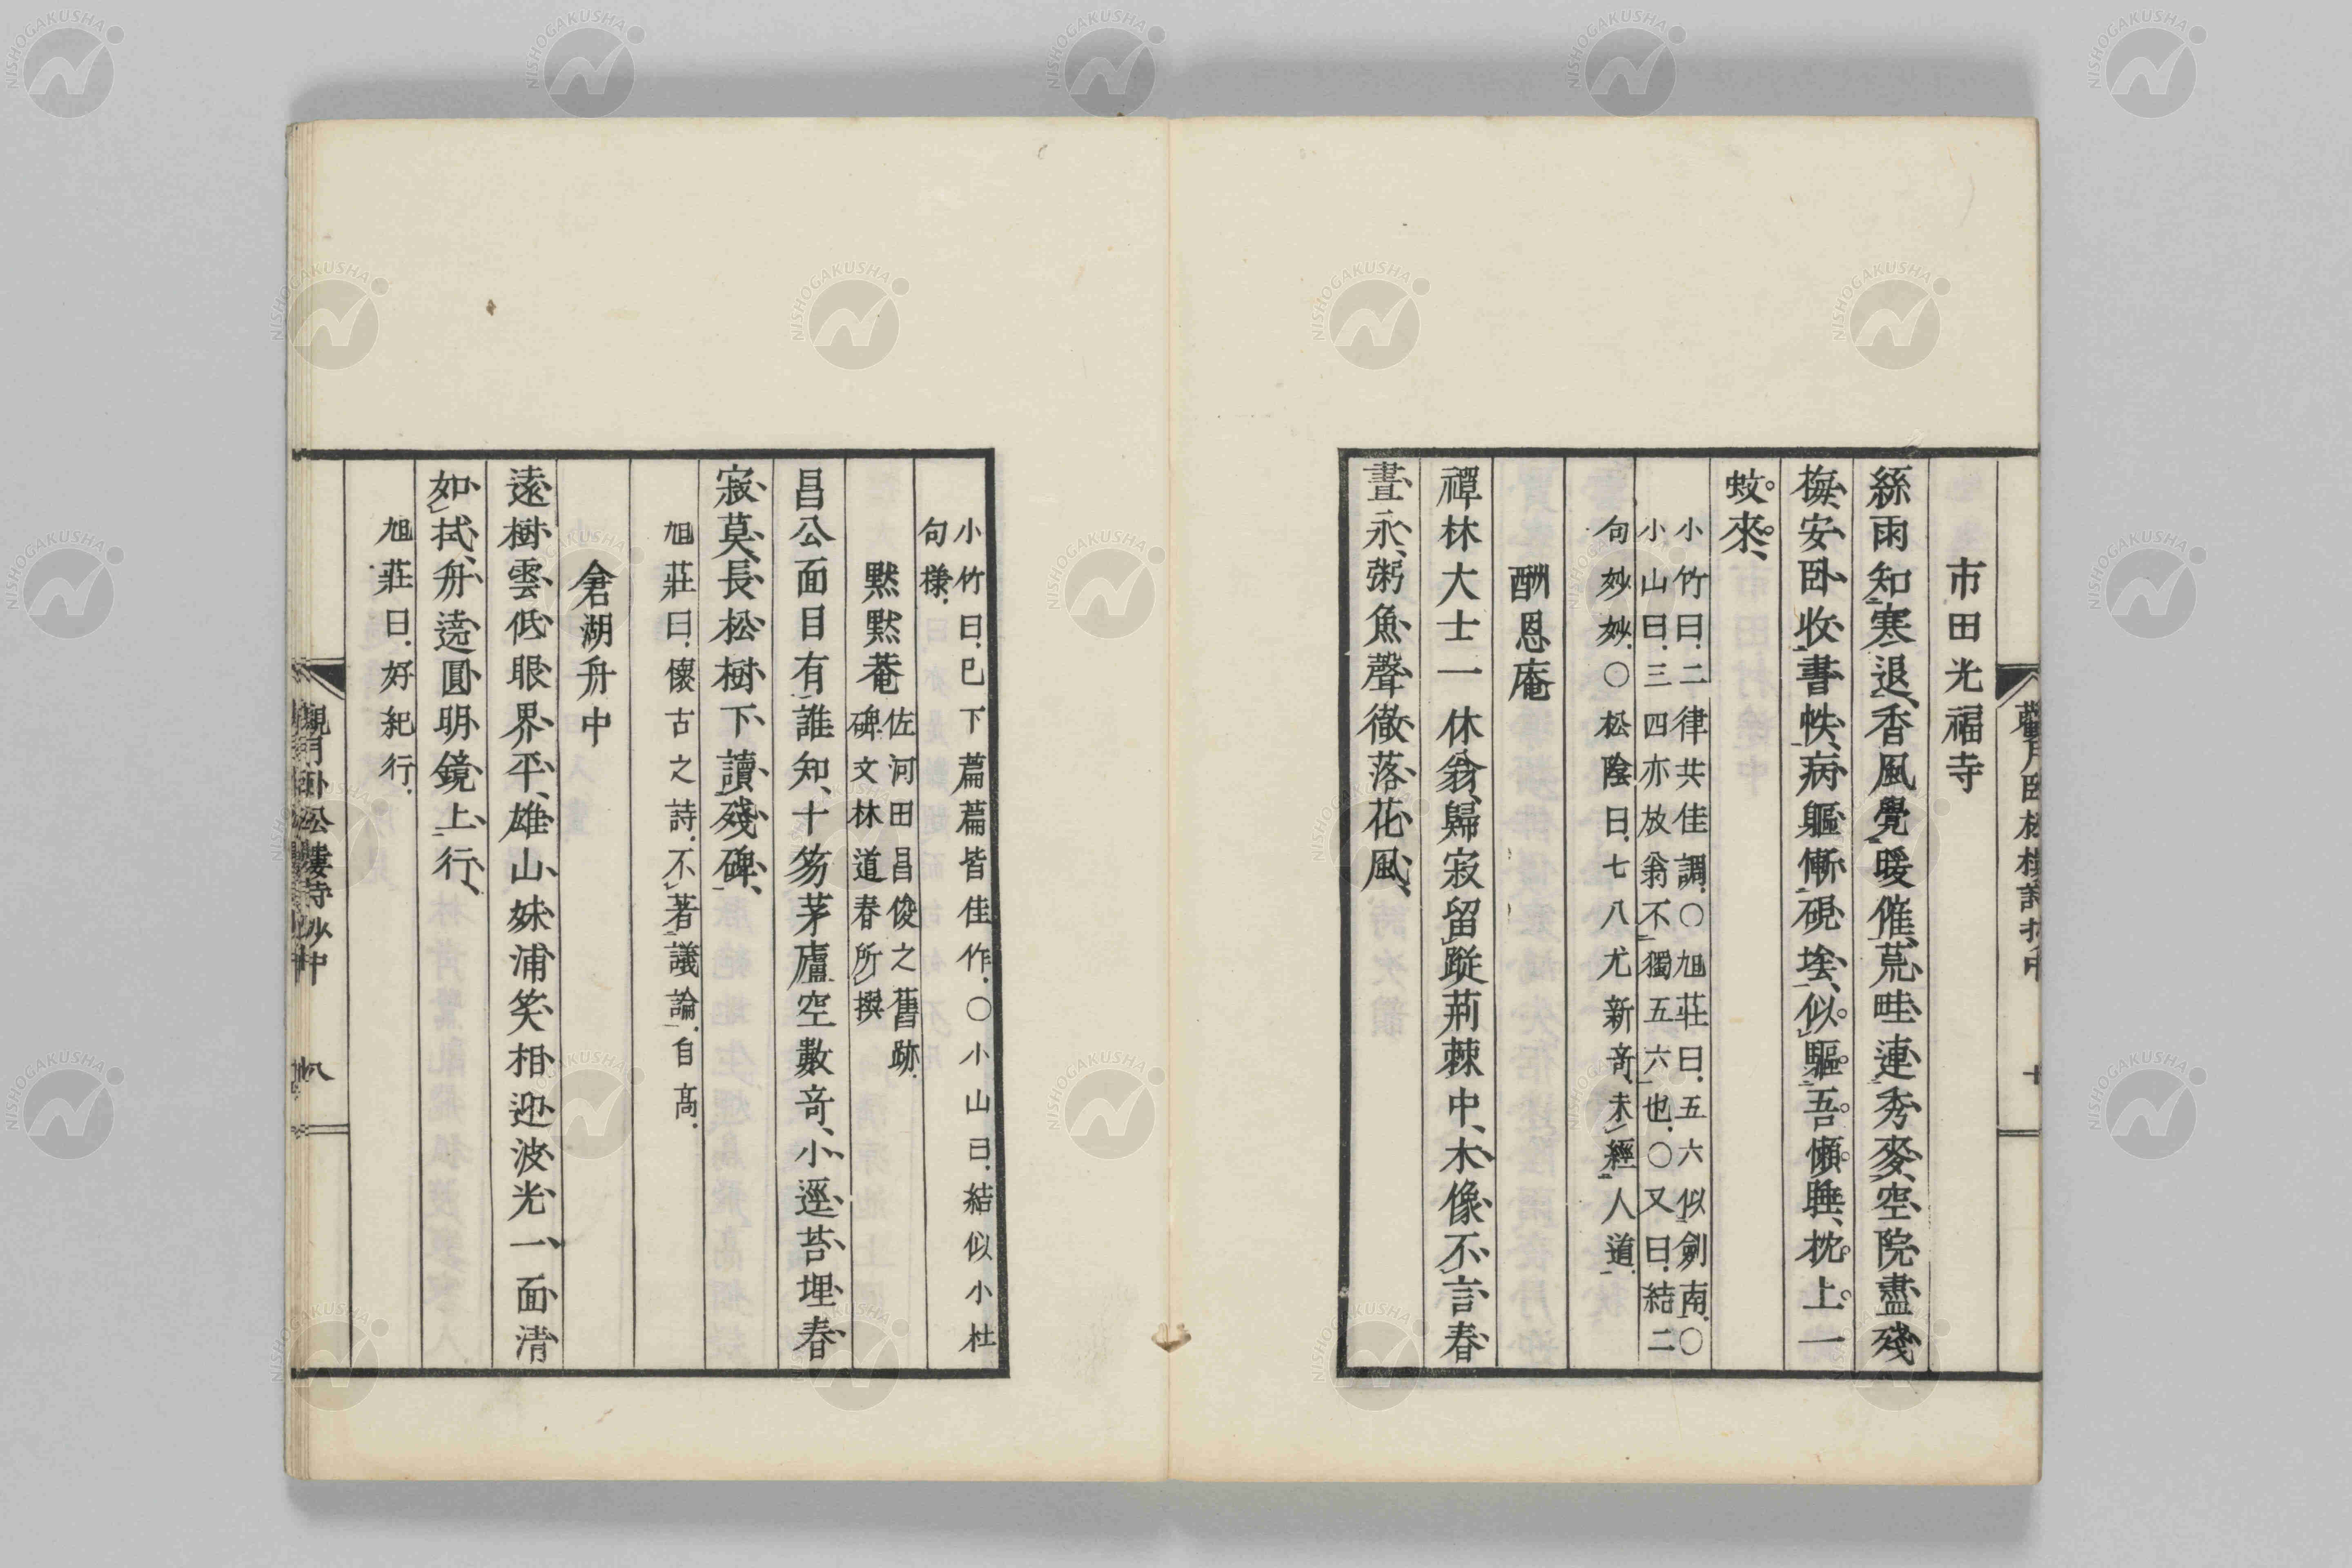 市田光福寺
絲雨知寒退、香風覺暖催、荒畦連秀麥、空院盡殘
梅、安臥收書帙、病軀慚硯埃、似驅吾懶睡、枕上一
蚊來、
小竹曰.二律共佳調.〇旭莊曰.五六似劍南.〇
小山曰.三四亦放翁不獨五六也.〇又曰.結二
句妙妙.〇松陰曰.七八尤新奇、未經人道.
酬恩庵
禪林大士一休翁、歸寂留蹤荊棘中、木像不言春
晝永、粥魚聲徹落花風、
小竹曰.已下篇篇皆佳作.〇小山曰.結似小杜
句樣.
默默菴 佐河田昌俊之舊跡.
碑文林道春所撰
昌公面目有誰知、十笏茅廬空數奇、小逕苔埋春
寂莫、長松樹下讀殘碑、
旭莊曰.懷古之詩.不著議論.自高.
倉湖舟中
遠樹雲低眼界平、雄山妹浦笑相迎、波光一面清
如拭、舟遶圓明鏡上行、
旭莊曰.好紀行.
八
NISHOGAKUSHA